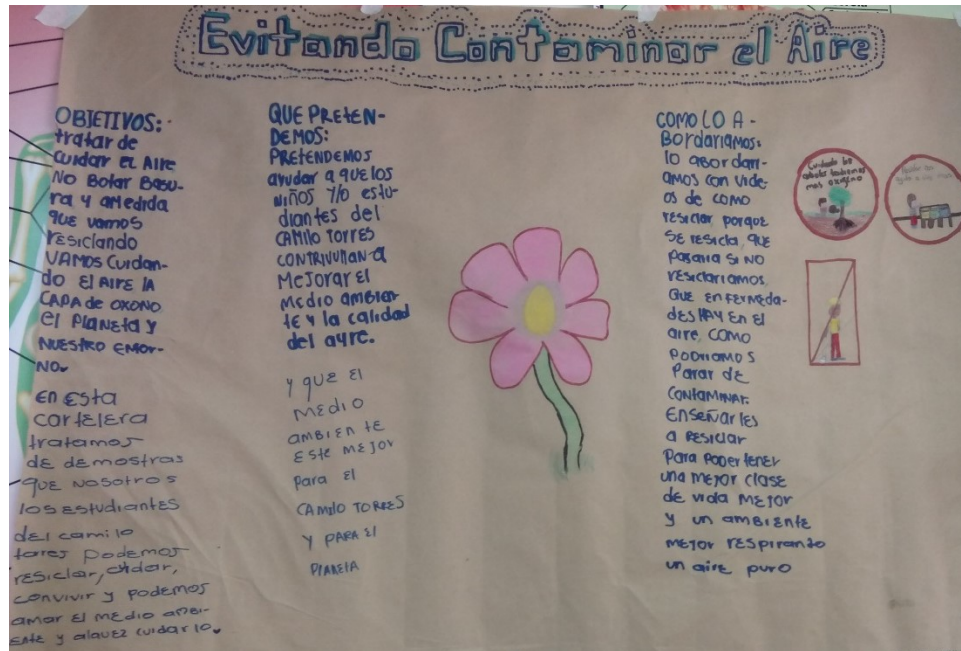 Evitando Contaminar el Aire
OBJETIVOS:
tratar de
cuidar el Aire
No Botar Basu-
ra y amedida
que vamos
resiclando
vamos cuidan-
do el aire la
capa de oxono
el planeta y
nuestro emor-
no.
en esta
cartelera
tratamos
de demostras
que nosotros
los estudiantes
del camilo
torres podemos
resiclar, cuidar,
convivir y podemos
amar el medio ambi-
ente y alavez cuidarlo.
QUE PRETEN-
DEMOS:
Pretendemos
ayudar a que los
niños y/o estu-
diantes del
camilo torres
contrivullan a
mejorar el
medio ambien-
te y la calidad
del ayre.
y que el
medio
ambiente
este mejor
para el
camilo torres
y para el
planeta
COMO LO A-
Bordariamos:
lo abordari-
amos con vide-
os de como
resiclar porque
se resicla, que
pasaria si no
resiclariamos,
que enfermeda-
des hay en el
aire, como
podriamos
parar de
contaminar.
enseñarles
a resiclar
para poder tener
una mejor clase
de vida mejor
y un ambiente
mejor respirando
un aire puro
Cuidando los
arboles tendremos
mas oxigeno